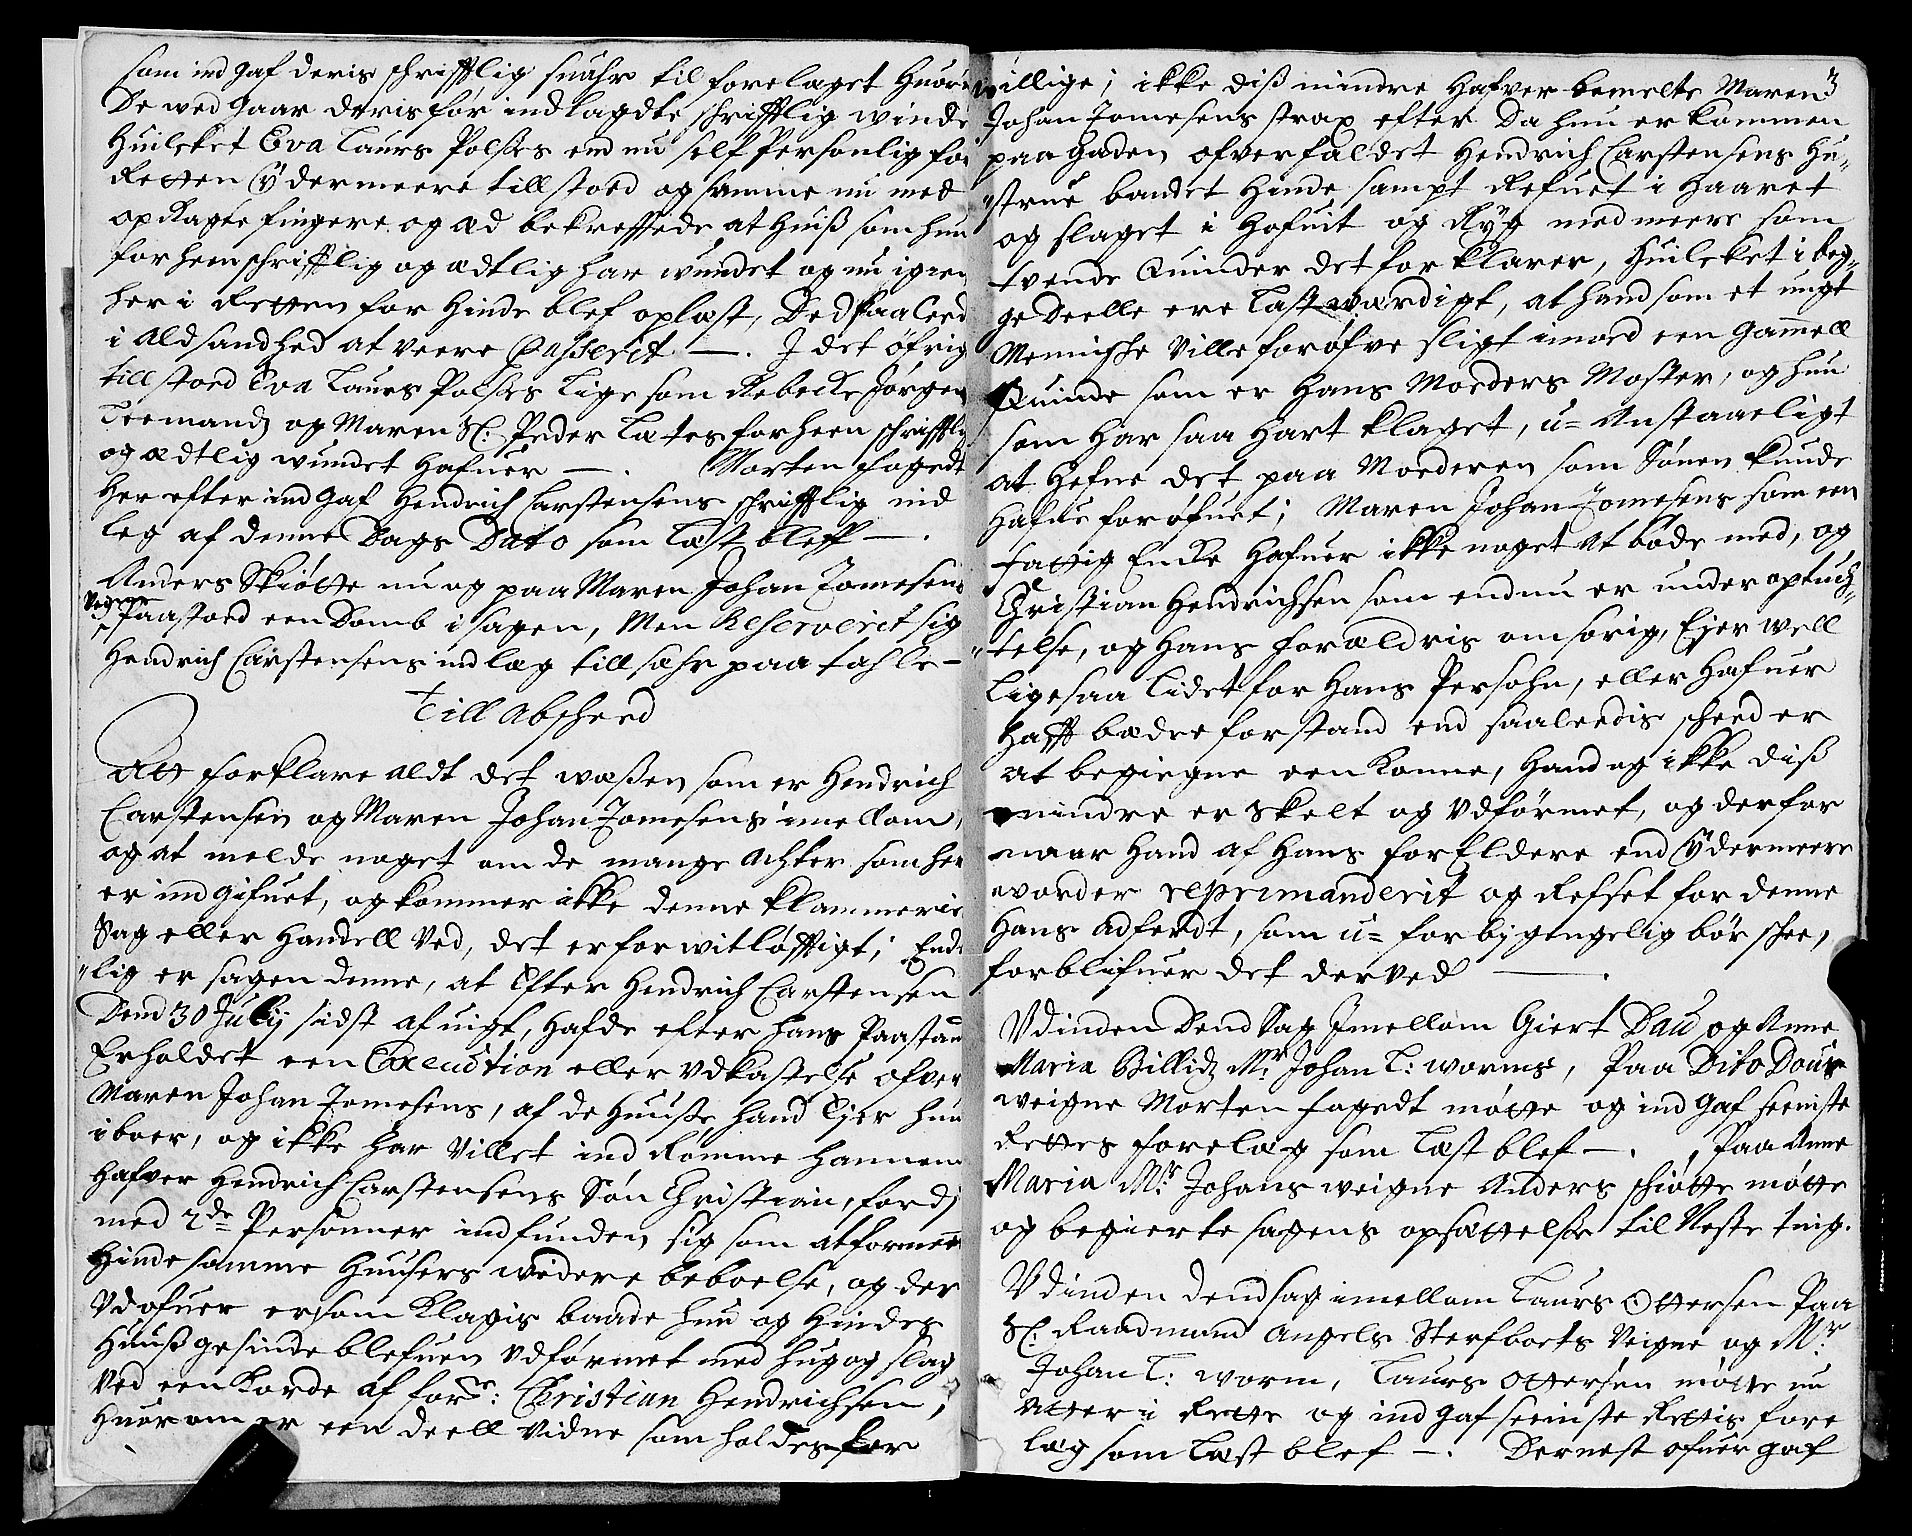 som ind gaf deris schrifftlig suahr til forelaget Huor
De wed gaar deris for indlagdte schrifftlig winde
Huilcket Eva Laurs Polses end nu self Personlig for
Retten Ÿdermeere till stoed og samme nu med
opRagte fingere og æd bekrefftede at Huiß som hun
forheen schrifftlig og ædtlig har wundet og nu igien
her i Retten for Hinde blef oplæst, Ded saaleed
i Ald sandhed at veere Passerit — . I det öfrig
till stoed Eva Laurs Polses lige som Rebecke Jörgen
Teemands og Maren Sl: Peder Lætes forheen schrifftlig
og ædtlig wundet Hafuer — . Morten fogedt
Her efter ind gaf Hendrich Carstensens schrifftlig ind
leg af denne Dags Dato som læst bleff — .
Anders Skiötte nu og paa Maren Johan Jomesens
Veigne Paastoed een Domb i sagen, Men Reserverit sig
Hendrich Carstensens indlæg till sahr paa tahle —
Till Abscheed
Att forklare Aldt det waßen som er Hendrich
Carstensen og Maren Johan Jomesens imellom,
og at melde noget om de mange Achter som her
er ind gifuet, og kommer icke denne klammerie
Sag eller Handell Ved, det er for witløfftigt; Ende
"lig er sagen denne, at Efter Hendrich Carstensen
Dend 30 Julij sidst afuigt, Hafde efter hans Paastand
Erholdet een Execution eller Udkastelse ofver
Maren Johan Jomesens, af de Huuße Hand Ejer hun
iboer, og ikke har villet ind Römme hannem
Hafver Hendrich Carstensens Sön Christian, fordj
med 2de Personner indfunden sig som atformeent
Hinde samme Huusers widere beboelse, og der
Udofuer ersom Klagis baade hun og Hindes
Huuß gesinde blefuen Udförmet med hug og slag
Ved een Korde af forne: Christian Hendrichsen,
Huorom er een deell Vidne som holdes for
3
willige; ikke diß mindre Hafver bemelte Maren
Johan Jomesens strax efter Da hun er kommen
paa gaden ofverfaldet Hendrich Carstensens Hu-
"strue bandet Hinde sampt Refuet i Haaret
og slaget i Hofuit og Ryg med meere som
tvende Quinder det forklarer, Huilcket i beg-
ge Deelle ere lastwærdigt, at hand som et ungt
Mennische ville foröfve sligt imoed een gamell
Quinde som er Hans Moeders Moster, og hun
som Har saa Hart klaget, u= Anstaaeligt
at Hefne det paa Moederen som Sönen kunde
Hafue foröfuet; Maren Johan Jomesens som een
fattig Encke Hafuer ikke noget at böde med, og
Christian Hendrichsen som endnu er under optuch-
"telse, og Hans forældris omsorig, Ejer well
ligesaa lidet for Hans Persohn, eller Hafuer
Hafft bædre forstand end saaleedis scheed er
at begiegne een Konne, Hand og ikke diß
mindre er skelt og Udförmet, og derfor
naar Hand af Hans forEldere end Ÿdermeere
vorder reprimanderit og Refset for denne
Hans Adferdt, som u= forbigengelig bör schee,
forblifuer det derved — .
Udinden Dend Sag Imellom Giert Dau og Anne
Maria Billids Mr: Johan L: worms, Paa Dito Dous
weigne Morten fogedt mötte og ind gaf seeniste
Rettes forelæg som læst blef — . , Paa Anne
Maria Mr: Johans weigne Anders schiötte mötte
og begierte sagens opsættelse til Neste ting.
Udinden dend sag imellom Laurs Ottersen Paa
Sl: Raadmand Angels Sterfboets Veigne og Mr:
Johan L: worm, Laurs Ottersen mötte nu
Atter i Rette og ind gaf seeniste Rettis fore
læg som læst blef — . Dernest ofuer gaf